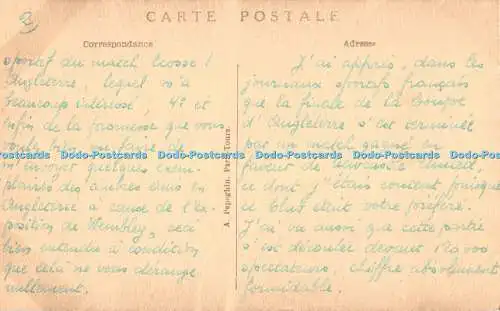 3)
CARTE POSTALE
Correspondance
sportif du match Ecosse /
Angleterre, lequel m'a
beaucoup intéressé. 4° et
enfin de la promesse que vous
voulez bien me faire de
m'envoyer quelques exem-
plaires des timbres émis en
Angleterre à cause de l'Ex-
position de Wembley, ceci
bien entendu à condition
que celà ne vous dérange
nullement.
A. Papeghin, Paris-Tours.
Adresse
J'ai appris, dans les
journaux sportifs français
que la finale de la Coupe
d'Angleterre s'est terminée
par un match gagné en
faveur de Newcastle United,
ce dont j'étais content puisque
ce Club était votre préféré.
J'ai vu aussi que cette partie
s'est déroulée devant
spectateurs, chiffre absolument
formidable.
Dodo-Postcards Dodo-Postcards Dodo-Postcards Dodo-Postcards Dodo-Postcards